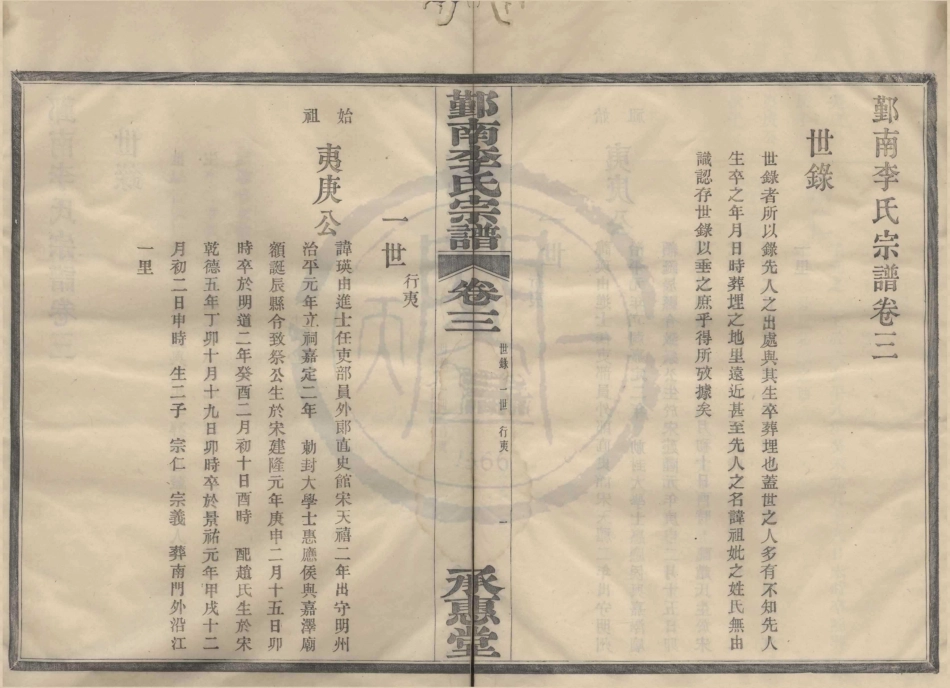 鄞南李氏宗譜卷三
世錄
世錄者所以錄先人之出處與其生卒葬埋也蓋世之人多有不知先人
生卒之年月日時葬埋之地里遠近甚至先人之名諱祖妣之姓氏無由
識認存世錄以垂之庶乎得所攷據矣
鄞南李氏宗譜
卷三
世錄 一世 行夷 一
承惠堂
一世 行夷
始祖
夷庚公
諱瑛由進士任吏部員外郎直史館宋天禧二年出守明州
治平元年立祠嘉定二年 勅封大學士惠應侯與嘉澤廟
額誕辰縣令致祭公生於宋建隆元年庚申二月十五日卯
時卒於明道二年癸酉二月初十日酉時 配趙氏生於宋
乾德五年丁卯十月十九日卯時卒於景祐元年甲戌十二
月初二日申時 生二子 宗仁 宗義 葬南門外沿江
一里